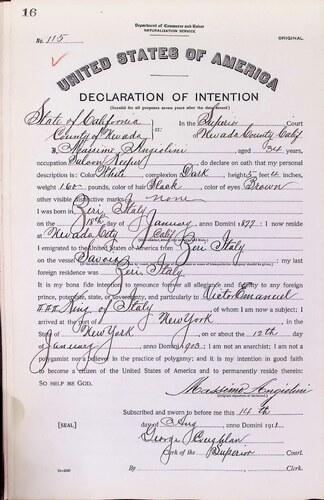 16
Department of Commerce and Labor
NATURALIZATION SERVICE
No. 115
ORIGINAL.
UNITED STATES OF AMERICA
DECLARATION OF INTENTION
(Invalid for all purposes seven years after the date hereof)
State of California
County of Nevada ss:
In the Superior Court
Nevada County Calif
I, Massimo Angiolini, aged 34 years,
occupation Saloon Keeper, do declare on oath that my personal
description is: Color White, complexion Dark, height 5 feet 4 inches,
weight 160 pounds, color of hair Black, color of eyes Brown
other visible distinctive marks none
I was born in Zeri, Italy
on the 18th day of January, anno Domini 1877; I now reside
at Nevada City Calif
I emigrated to the United States of America from Zeri Italy
on the vessel Savoia; my last
foreign residence was Zeri Italy
It is my bona fide intention to renounce forever all allegiance and fidelity to any foreign
prince, potentate, state, or sovereignty, and particularly to Victor Emanuel
III King of Italy, of whom I am now a subject; I
arrived at the port of New York, in the
State of New York on or about the 12th day
of January, anno Domini 1903; I am not an anarchist; I am not a
polygamist nor a believer in the practice of polygamy; and it is my intention in good faith
to become a citizen of the United States of America and to permanently reside therein:
SO HELP ME GOD.
Massimo Angiolini
Subscribed and sworn to before me this 14th
[SEAL] day of Aug, anno Domini 1911
George J Coughlan
Clerk of the Superior Court.